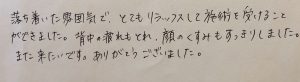 落ち着いた雰囲気で、とてもリラックスして施術を受けること
ができました。背中の疲れもとれ、顔のくすみもすっきりしました。
また来たいです。ありがとうございました。